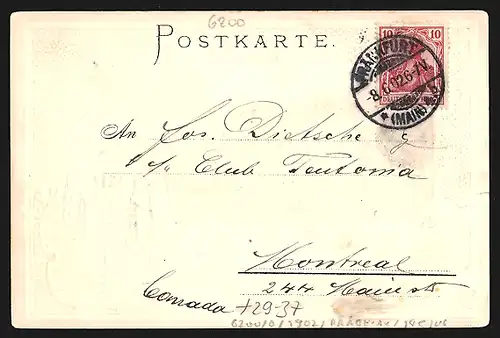 6200
POSTKARTE.
10 10
FRANKFURT
-8.6.02.6-7N.
* (MAIN)
An Jos. Dietsche
c/o Club Teutonia
Montreal
244 Main st
Canada +29-37
6200/0/1902/PRÄGE-AK/